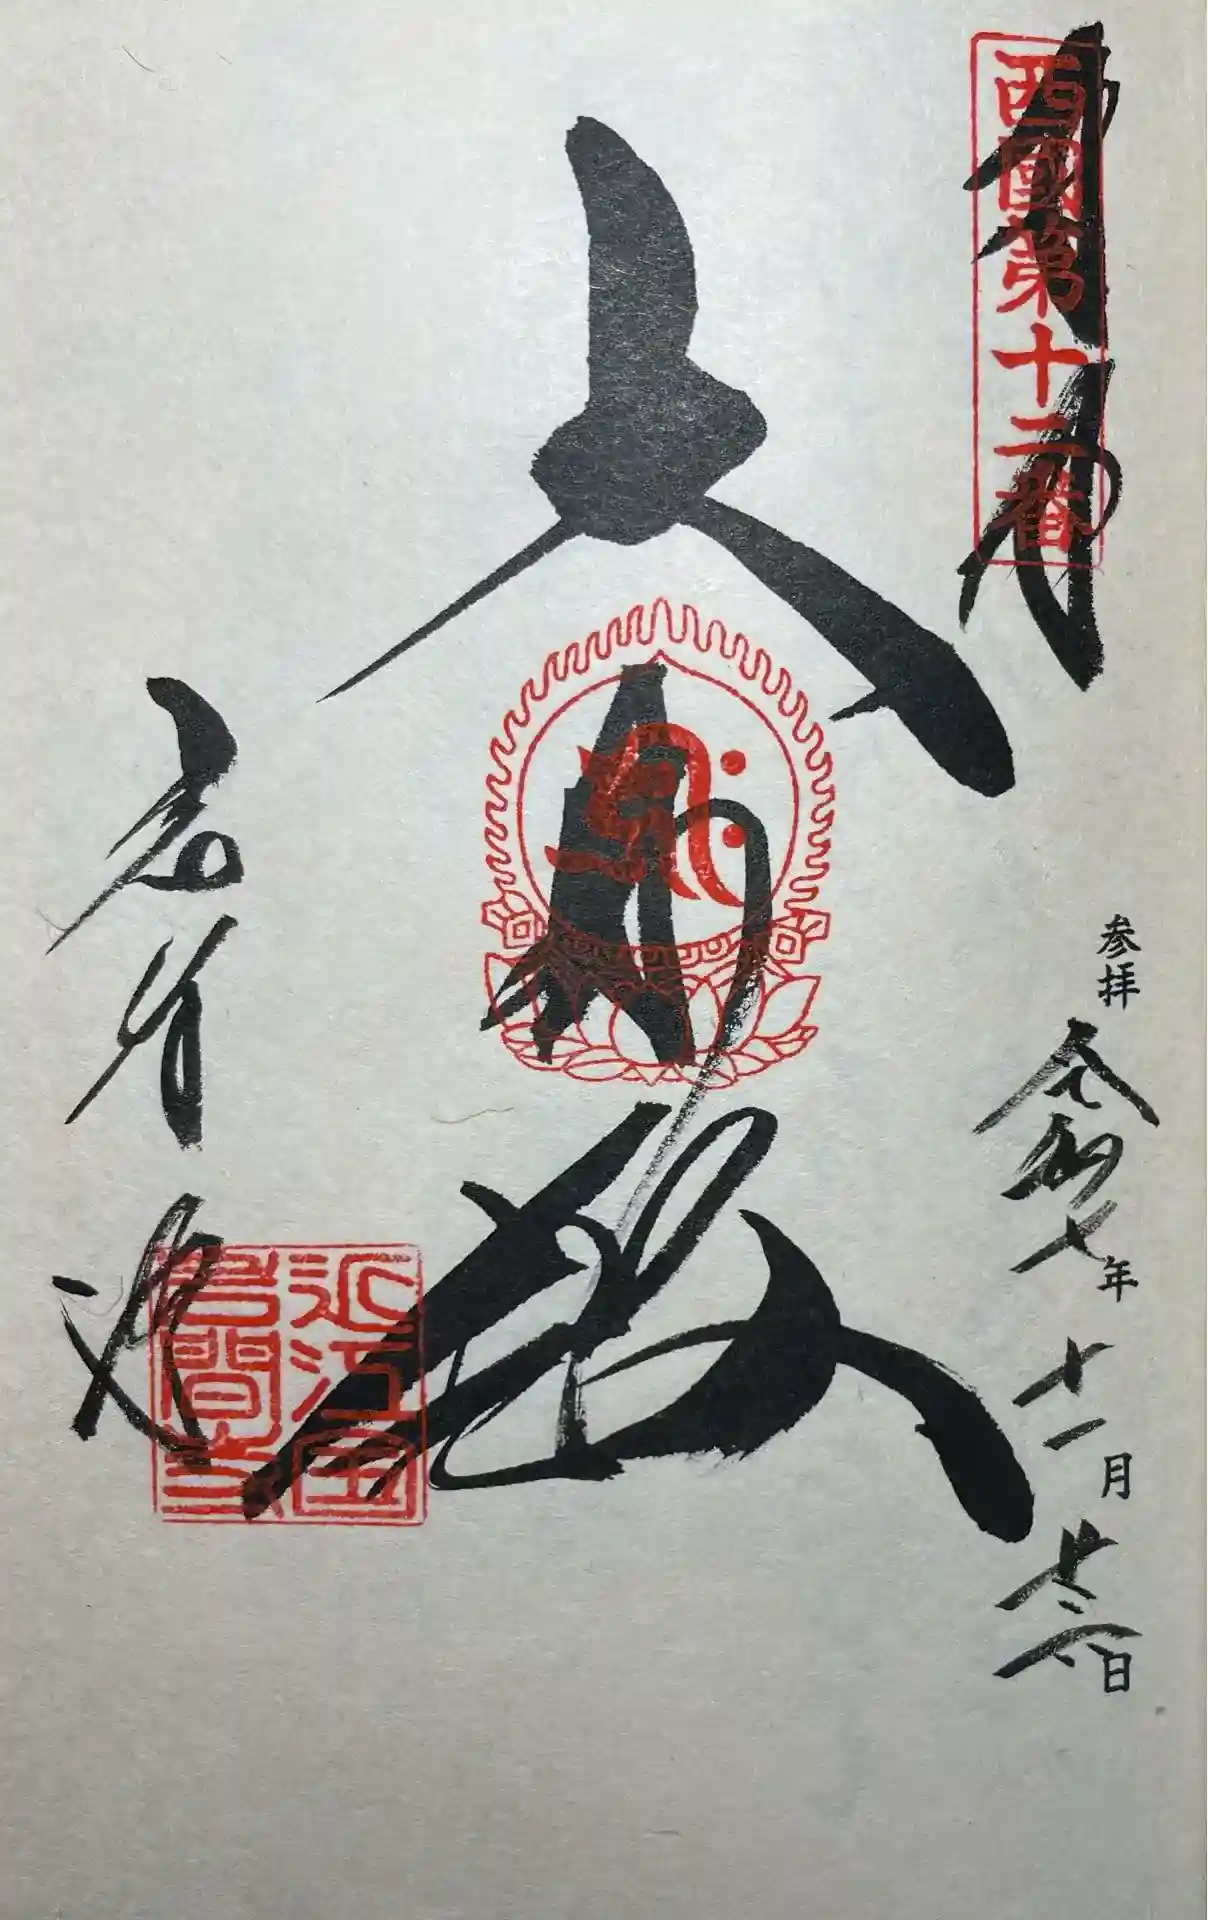 奉拝
西國第十二番
参拝 令和七年十一月 日
大悲殿
岩間寺
近江国
岩間寺